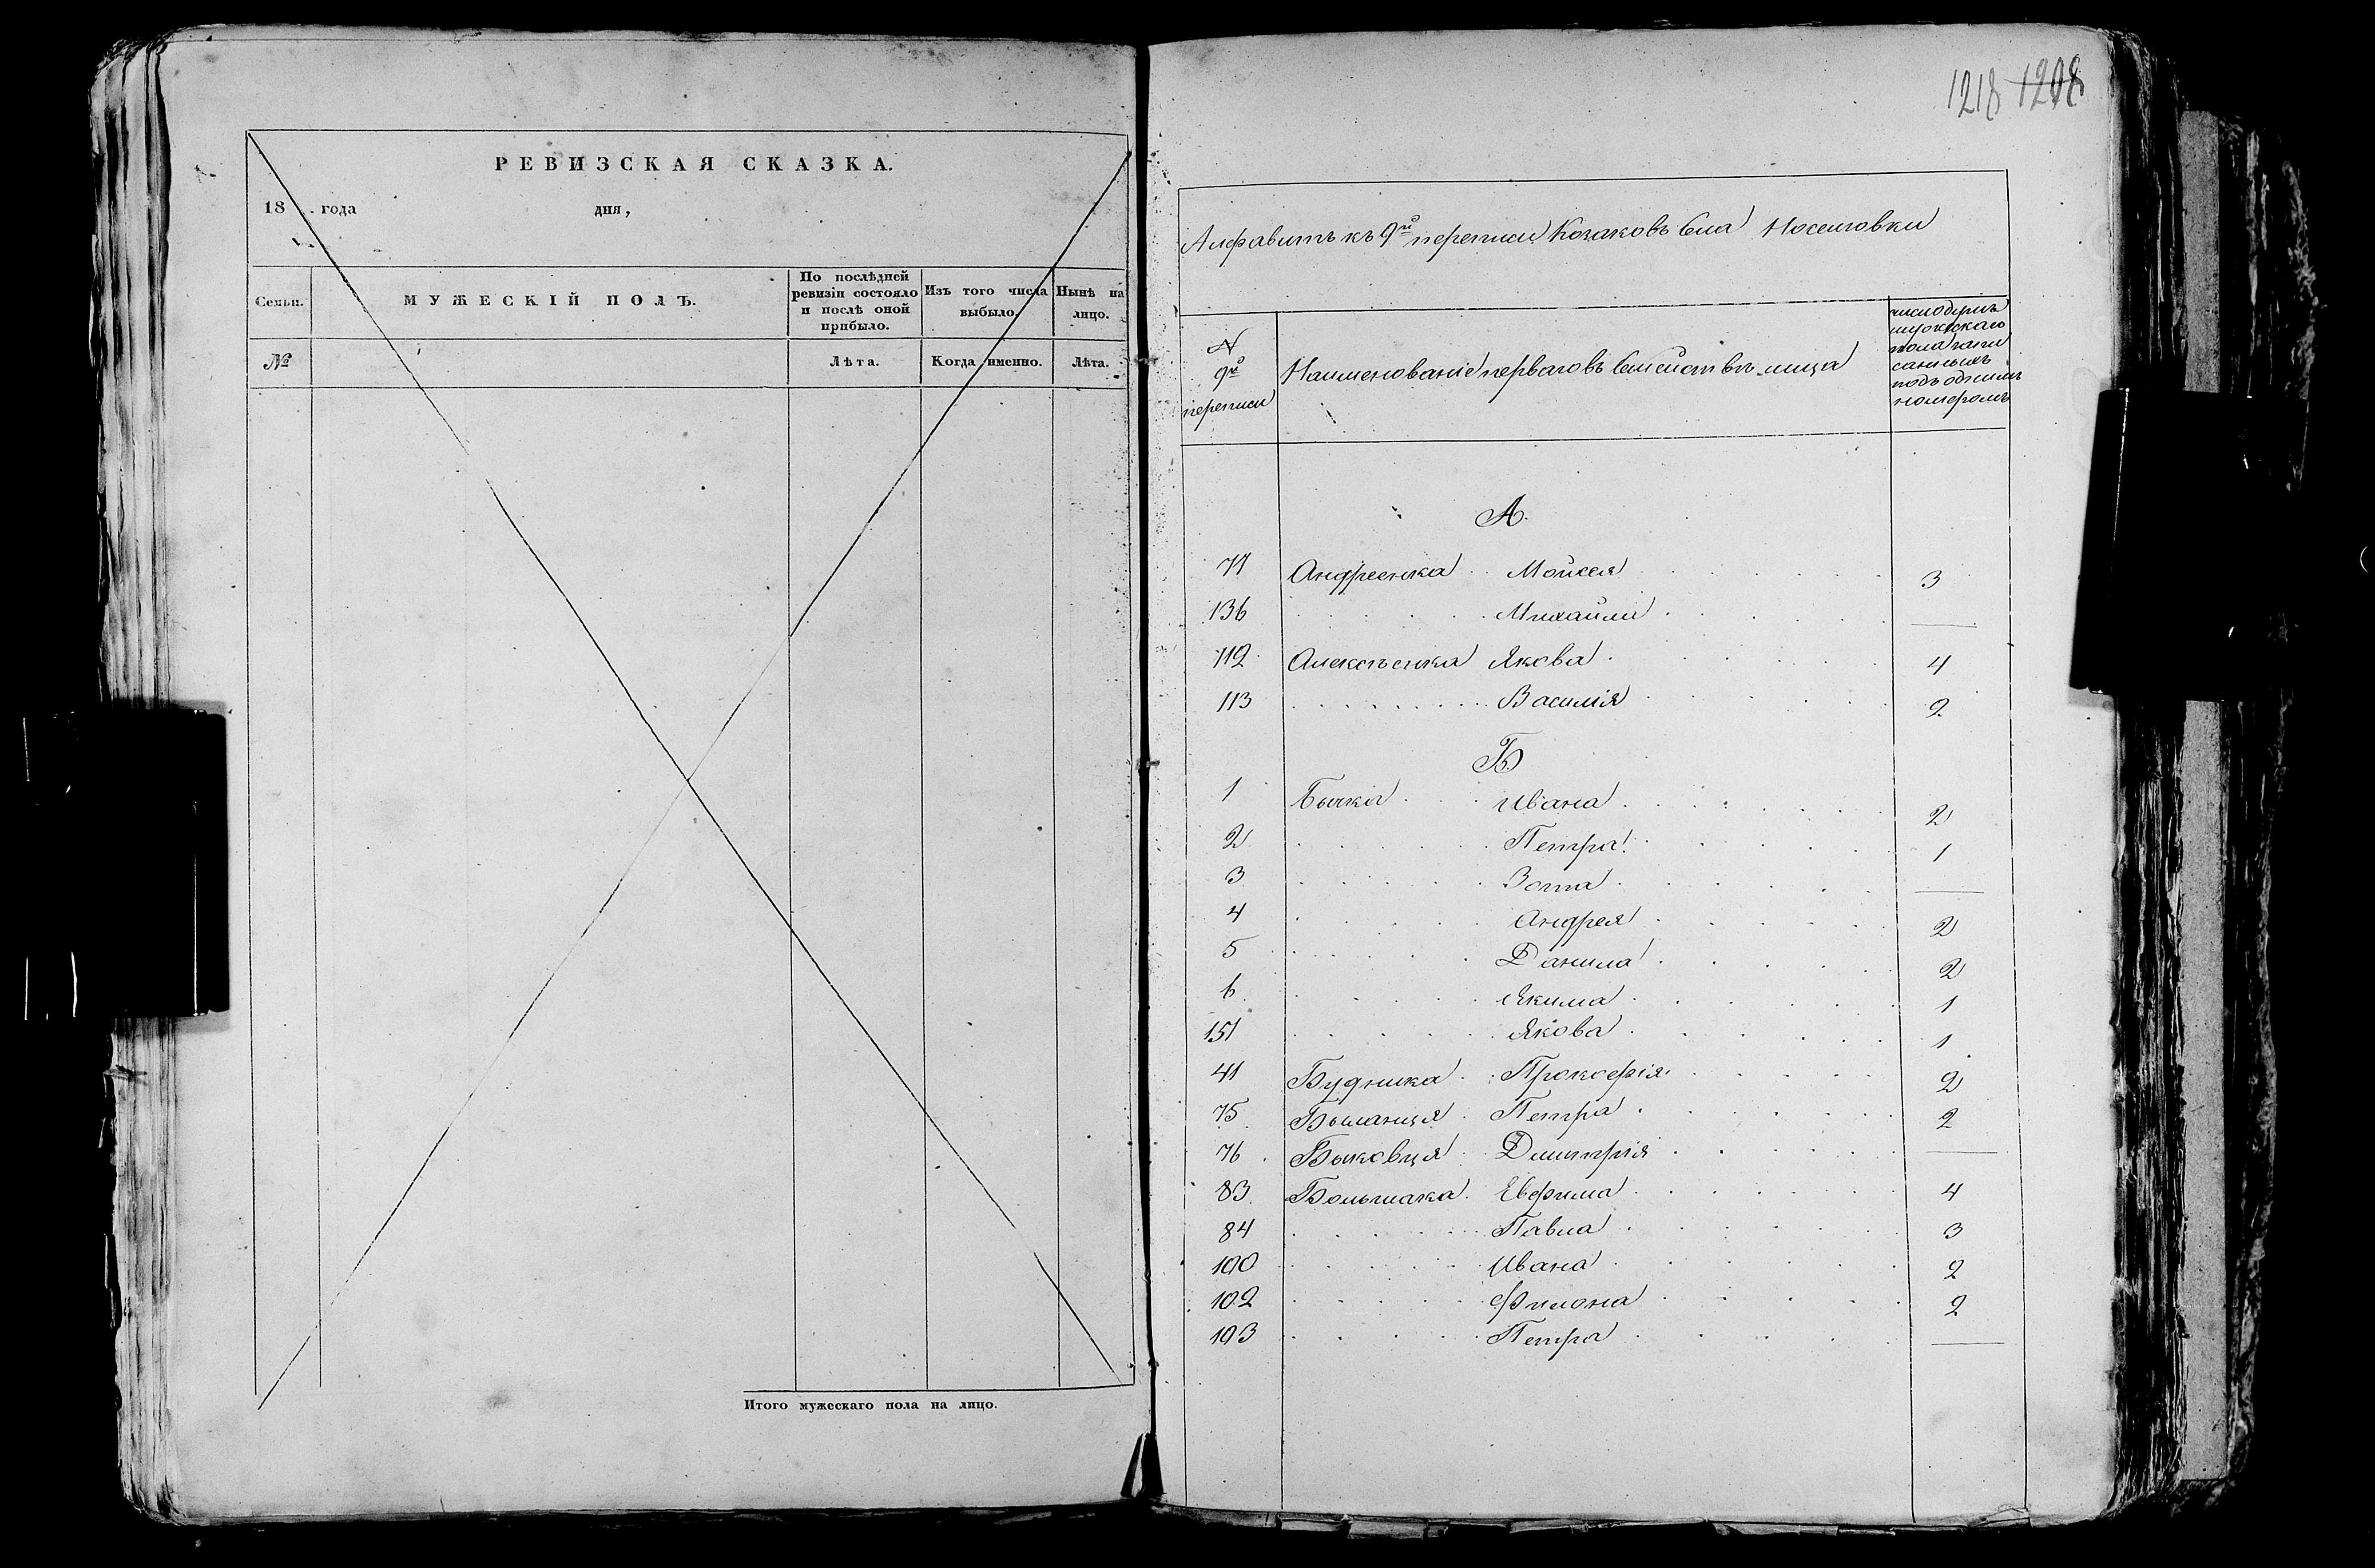 РЕВИЗСКАЯ СКАЗКА.
18 года дня,
Семьи. МУЖЕСКІЙ ПОЛЪ. По послѣдней ревизіи состояло и послѣ оной прибыло. Изъ того числа выбыло. Нынѣ на лицо.
№ Лѣта. Когда именно. Лѣта.
Итого мужескаго пола на лицо.
1218 1208
Алфавитъ къ 9й переписи Козаковъ Села Носеловки
N 9й переписи
Наименованіе перваго въ Семействѣ лица
число душъ
мужескаго
пола запи
санныхъ
подъ однимъ
номеромъ
А.
71 Андреенка Мойсея 3
136 Михайли —
112 Алексѣенка Якова 4
113 Василія 2
Б
1 Бычка Ивана 2
2 Петра 1
3 Зота —
4 Андрея 2
5 Данила 2
6 Якима 1
151 Якова 1
41 Будника Прокофія 2
75 Быланця Петра 2
76 Быковця Дмитрія —
83 Большака Евфима 4
84 Павла 3
100 Ивана 2
102 Филона 2
103 Петра —